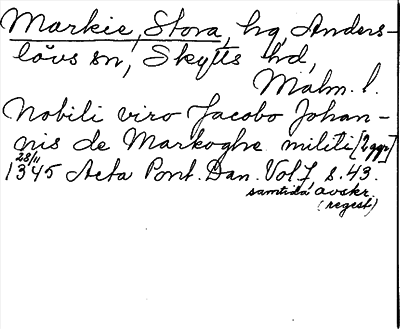 Markie, Stora, hg, Anders-
lövs sn, Skytts hd,
Malm. l.
Nobili viro Jacobo Johan-
nis de Markoghe militi [2 ggr]
28/11
1345 Acta Pont. Dan. Vol 7, s. 43.
samtida avskr.
(regest)